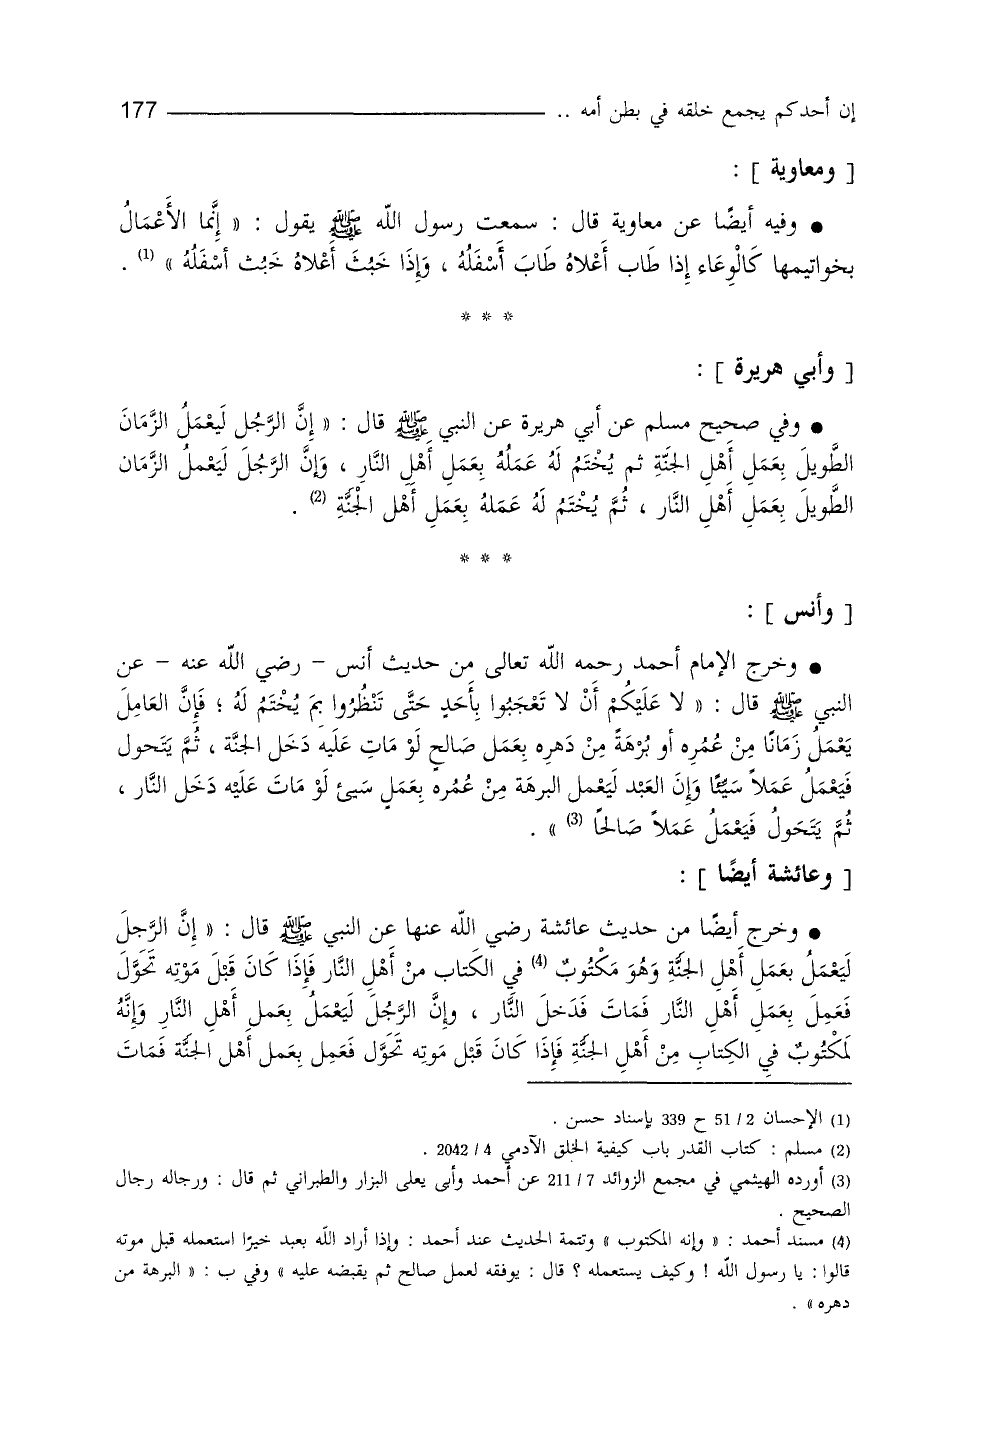 إن أحدكم يجمع خلقه في بطن أمه .. 177
[ ومعاوية ] :
● وفيه أيضًا عن معاوية قال : سمعت رسول اللّه ﷺ يقول : « إِنَّما الأَعْمَالُ
بخواتيمها كَالْوِعَاء إِذا طَاب أَعْلاهُ طَابَ أَسْفَلُهُ ، وَإِذَا خَبُثَ أَعْلاهُ خَبُث أسْفَلُهُ » (1) .
* * *
[ وأبي هريرة ] :
● وفي صحيح مسلم عن أبي هريرة عن النبي ﷺ قال : « إِنَّ الرَّجُل لَيَعْمَلُ الزَّمَانَ
الطَّويلَ بِعَمَلِ أَهْلِ الجنَّةِ ثم يُخْتَمُ لَهُ عَمَلُهُ بِعَمَلِ أَهْلِ النَّارِ ، وَإِنَّ الرَّجُلَ لَيَعْملُ الزَّمَان
الطَّويلَ بِعَمَلِ أَهْلِ النَّار ، ثُمَّ يُخْتَمُ لَهُ عَمَلهُ بِعَمَلِ أَهْل الْجَنَّةِ (2) .
* * *
[ وأنس ] :
● وخرج الإمام أحمد رحمه اللّه تعالى من حديث أنس – رضي اللّه عنه – عن
النبي ﷺ قال : « لا عَلَيكُمْ أَنْ لا تَعْجَبُوا بِأَحَدٍ حَتَّى تَنْظُرُوا بِمَ يُخْتَمُ لَهُ ؛ فَإِنَّ العَامِلَ
يَعْمَلُ زَمَانًا مِنْ عُمُرِه أو بُرْهَةً مِنْ دَهرِه بِعَمَل صَالحٍ لَوْ مَاتِ عَلَيه دَخَل الجنَّة ، ثُمَّ يَتَحول
فَيَعْمَلُ عَمَلاً سَيِّئًا وَإِنَ العَبْد لَيَعْمل البرهَة مِنْ عُمُره بِعَمَلٍ سَيئ لَوْ مَاتَ عَلَيْه دَخَل النَّار ،
ثُمَّ يَتَحَولُ فَيَعْمَلُ عَمَلاً صَالحًا (3) » .
[ وعائشة أيضًا ] :
● وخرج أيضًا من حديث عائشة رضي اللّه عنها عن النبي ﷺ قال : « إِنَّ الرَّجلَ
لَيَعْمَلُ بعَمَلِ أَهْلِ الجنَّةِ وَهُوَ مَكْتُوبٌ (4) في الكَتاب منْ أَهْلِ النَّار فَإِذَا كَانَ قَبْلَ مَوْتِه تَحَوَّلَ
فَعَمِلَ بِعَمَلِ أَهْلِ النَّار فَمَاتَ فَدَخلَ النَّار ، وإِنَّ الرَّجُلَ لَيَعْمَلُ بِعَملِ أَهْلِ النَّارِ وَإِنَّهُ
لَمكْتُوبٌ فِي الكِتابِ مِنْ أَهْلِ الجنَّةِ فَإِذَا كَانَ قَبْل مَوتِه تَحَوَّل فَعَمِل بِعَمل أَهْل الجنَّة فَمَاتَ
(1) الإحسان 2 / 51 ح 339 بإسناد حسن .
(2) مسلم : كتاب القدر باب كيفية الخلق الآدمي 4 / 2042 .
(3) أورده الهيثمي في مجمع الزوائد 7 / 211 عن أحمد وأبى يعلى البزار والطبراني ثم قال : ورجاله رجال
الصحيح .
(4) مسند أحمد : « وإنه المكتوب » وتتمة الحديث عند أحمد : وإذا أراد اللّه بعبد خيرًا استعمله قبل موته
قالوا : يا رسول اللّه ! وكيف يستعمله ؟ قال : يوفقه لعمل صالح ثم يقبضه عليه » وفي ب : « البرهة من
دهره » .